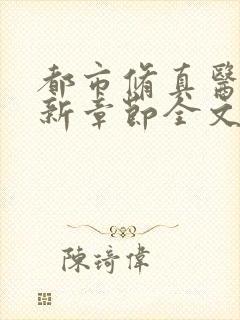 都市脩真醫
新章節全文
陳琦偉